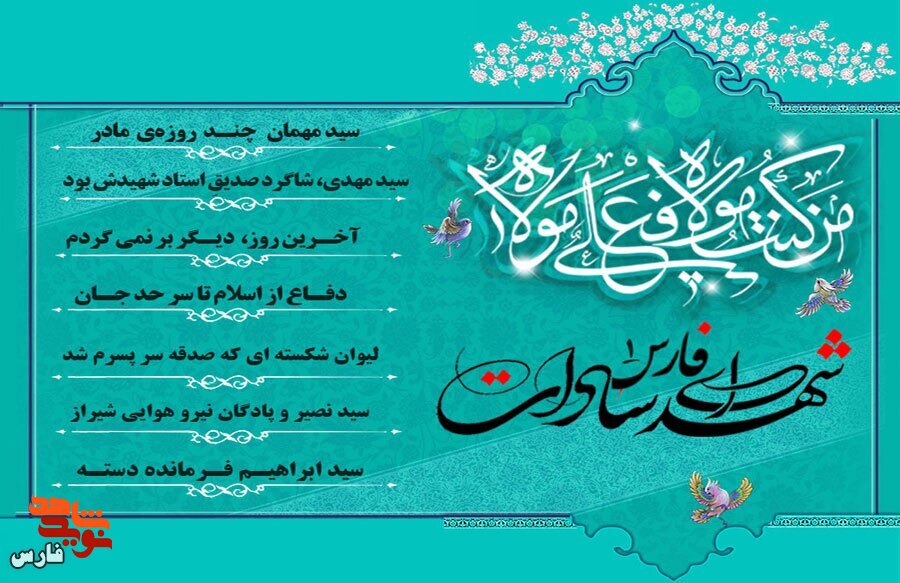 من كنت مولاه فعلي مولاه
شهدای سادات فارس ۱
سید مهمان چند روزه‌ی مادر
سید مهدی، شاگرد صدیق استاد شهیدش بود
آخرین روز، دیگر برنمی گردم
دفاع از اسلام تا سر حد جان
لیوان شکسته ای که صدقه سر پسرم شد
سید نصیر و پادگان نیرو هوایی شیراز
سید ابراهیم فرمانده دسته
نوید شاهد
فارس